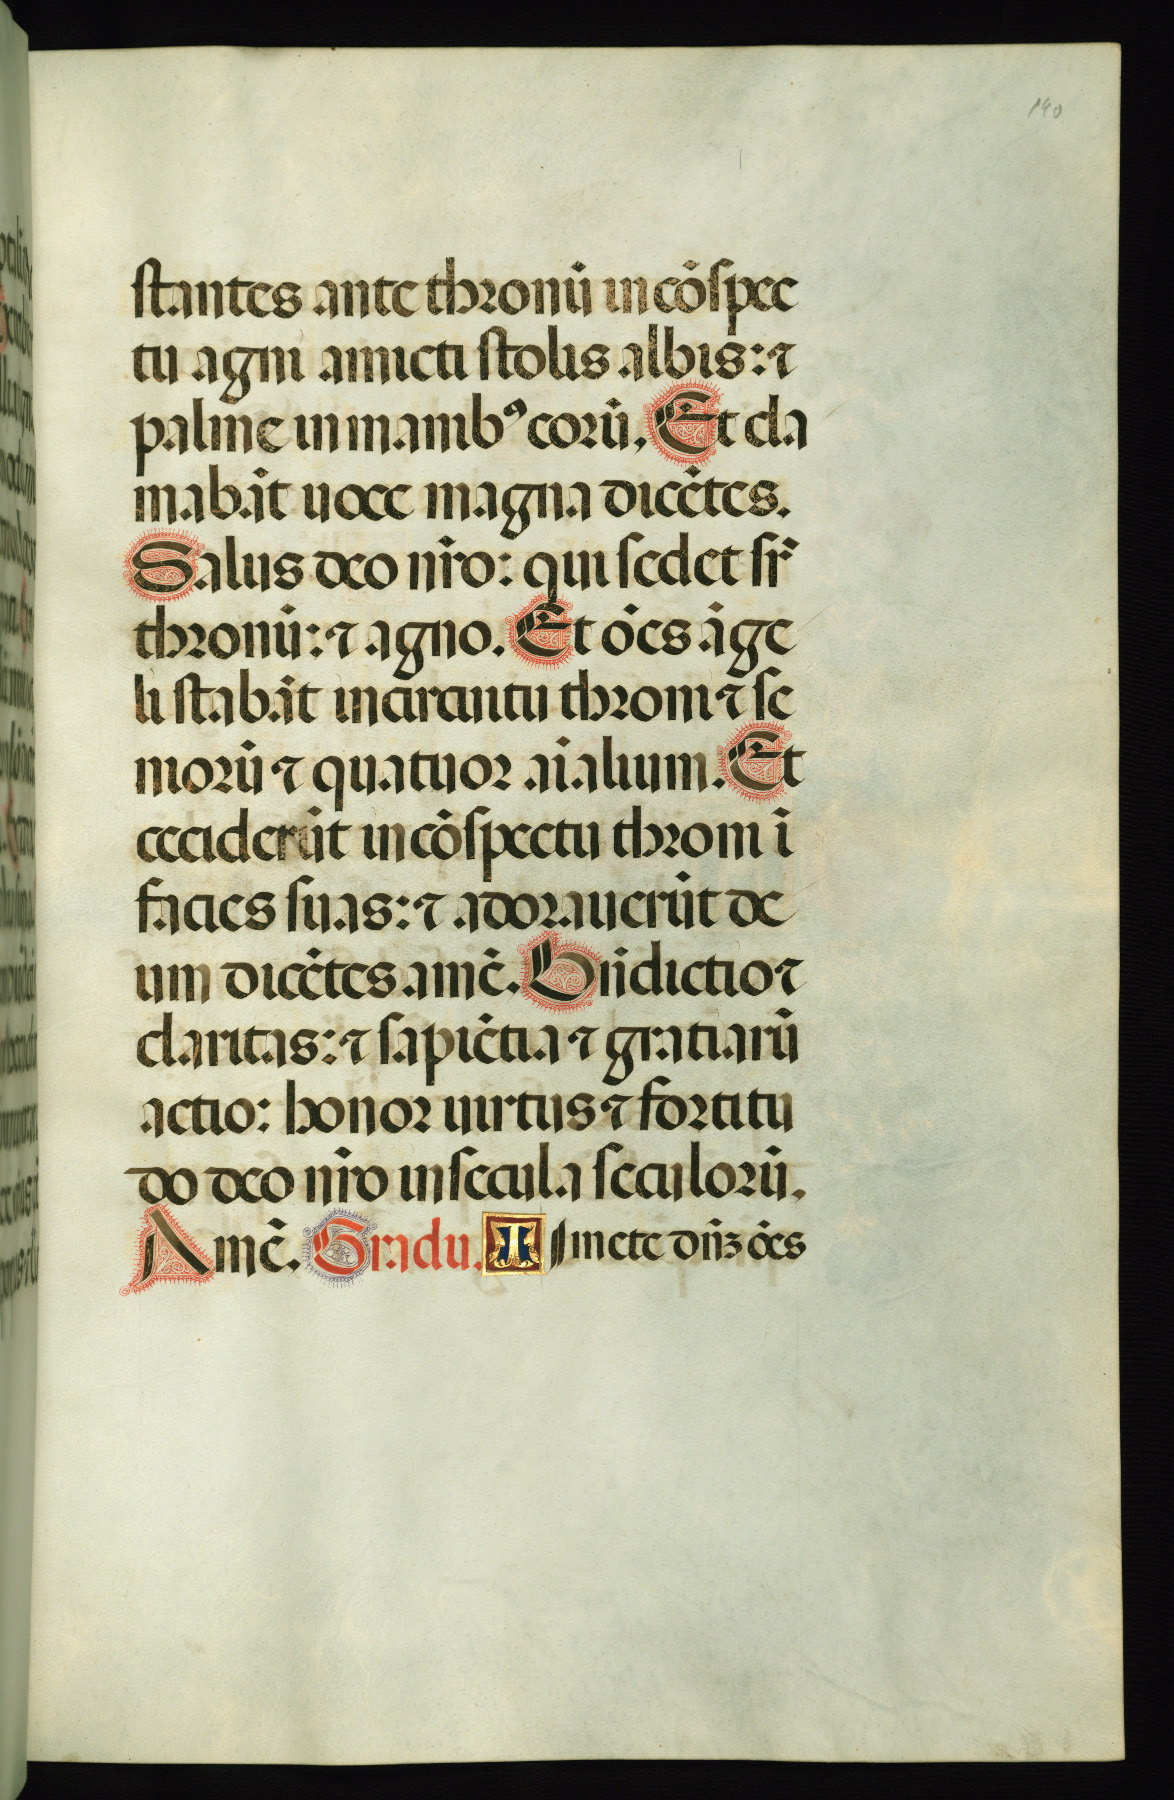 140
stantes ante thronū in cōspec
tu agni amicti stolis albis: ⁊
palme in manibꝰ eorū. Et cla
mabāt uoce magna dicētes.
Salus deo nr̄o: qui sedet sr̄
thronū: ⁊ agno. Et oēs āge
li stabāt in circuitu throni ⁊ se
niorū ⁊ quatuor aīalium. Et
ceciderūt in cōspectu throni ī
facies suas: ⁊ adorauerūt de
um dicētes amē. Bn̄dictio ⁊
claritas: ⁊ sapiētia ⁊ gratiarū
actio: honor uirtus ⁊ fortitu
do deo nr̄o in secula seculorū.
Amē. Gradu. Timete dn̄ꝫ oēs